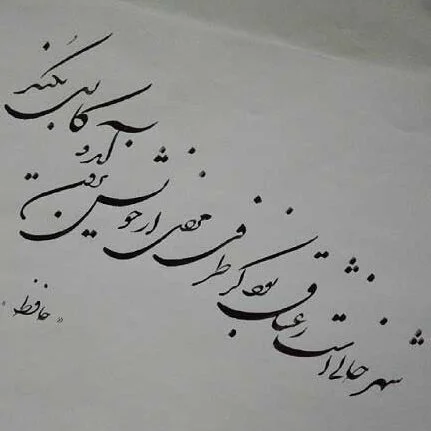 شهر خالی است ز عشاق بود کز طرفی مردی از خویش برون آید و کاری بکند
«حافظ»